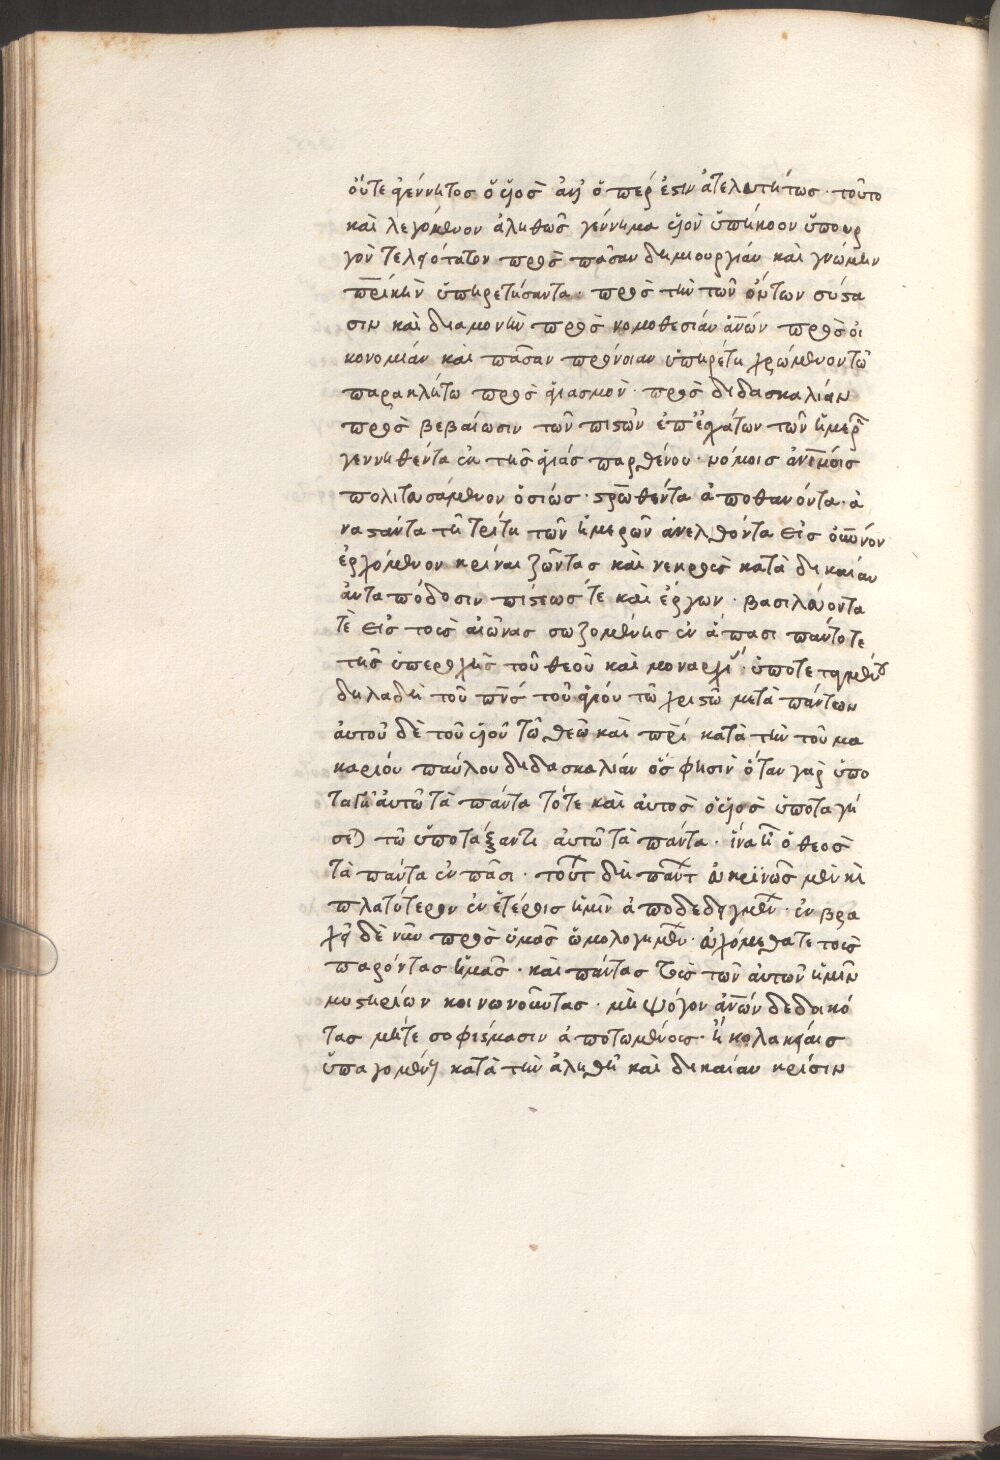 οὔτε ἀγέννητος ὁ υἱὸς ἀεὶ ὅ περ ἐστὶν ἀτελευτήτως · τοῦτο
καὶ λεγόμενον ἀληθῶς γέννημα υἱὸν ὑπήκοον ὑπουρ
γὸν τελειότατον πρὸς πᾶσαν δημιουργίαν καὶ γνώμην
πρικὴν ὑπηρετήσαντα · πρὸς τὴν τῶν ὄντων σύστα
σιν καὶ διαμονὴν πρὸς νομοθεσίαν ἀνῶν πρὸς οἰ
κονομίαν καὶ πᾶσαν πρόνοιαν ὑπηρέτη χρώμενον τῶ
παρακλήτω πρὸς ἁγιασμὸν · πρὸς διδασκαλίαν
πρὸς βεβαίωσιν τῶν πιστῶν ἐπ ἐσχάτων τῶν ἡμερῶν
γεννηθέντα ἐκ τῆς ἁγίας παρθένου · νόμοις ἀνίνοις
πολιτευσάμενον ὁσίως · στρωθέντα ἀποθανόντα · ἀ
ναστάντα τῆ τρίτη τῶν ἡμερῶν ἀνελθόντα εἰς οὐνόν
ἐρχόμενον κρίναι ζῶντας καὶ νεκροὺς κατὰ δικαίαν
ἀνταπόδοσιν πίστεως τε καὶ ἔργων · βασιλεύοντα
τὲ εἰς τοὺς αἰῶνας σωζομένης ἐν ἅπασι πάντοτε
τῆς ὑπεροχῆς τοῦ θεοῦ καὶ μοναρχίας · ὑποτεταγμένου
δηλαδὴ τοῦ πνς τοῦ ἁγίου τῶ χριστῶ μετὰ πάντων
αὐτοῦ δὲ τοῦ υἱοῦ τῶ θεῶ καὶ πρί κατὰ τὴν τοῦ μα
καρίου παύλου διδασκαλίαν ὅς φησὶν ὅταν γὰρ ὑπο
ταγῆ αὐτῶ τὰ πάντα τότε καὶ αὐτὸς ὁ υἱὸς ὑποταγή
σεται τῶ ὑποτάξαντι αὐτῶ τὰ πάντα · ἵνα ἦ ὁ θεὸς
τὰ πάντα ἐν πᾶσι · τούτων δὴ πάντων εὐκρινῶς μὲν καὶ
πλατύτερον ἐν ἑτέροις ἡμῖν ἀποδεδειγμένων · ἐν βρα
χεῖ δὲ νῦν πρὸς ὑμᾶς ὡμολογημένων · εὐχόμεθα τε τοὺς
παρόντας ἡμᾶς · καὶ πάντας τοὺς τῶν αὐτῶν ἡμῖν
μυστηρίων κοινωνοῦντας · μὴ ψόγον ἀνῶν δεδοικό
τας μήτε σοφίσμασιν ἀπατωμένους ἢ κολακείαις
ὑπαγομένους κατὰ τὴν ἀληθῆ καὶ δικαίαν κρίσιν